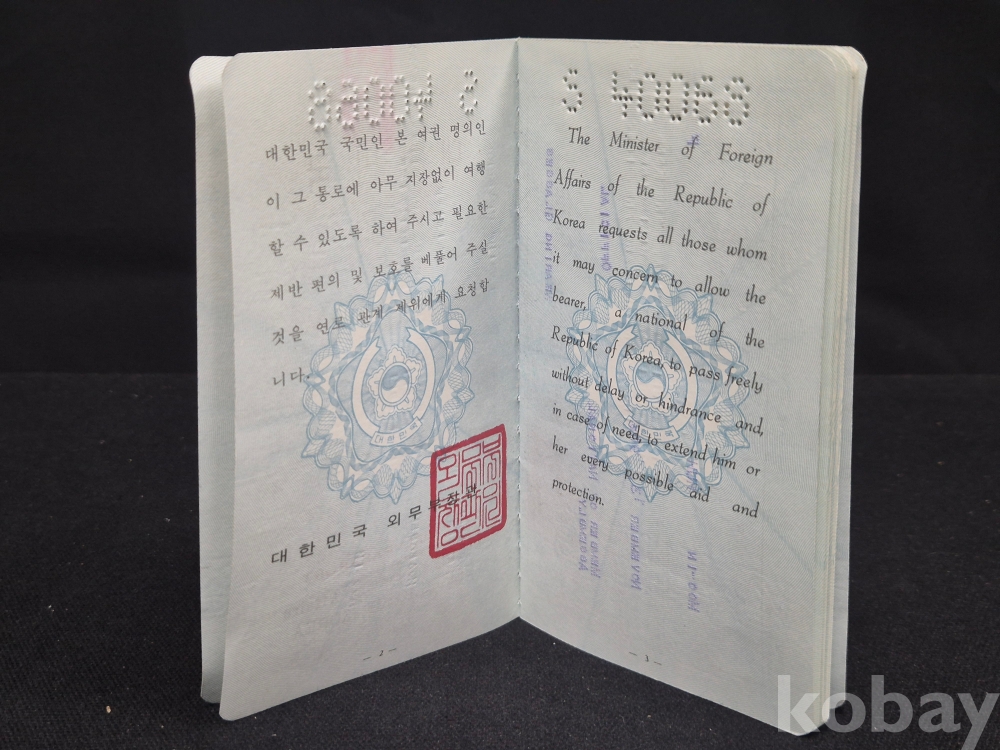 대한민국 국민인 본 여권 명의인
이 그 통로에 아무 지장없이 여행
할 수 있도록 하여 주시고 필요한
제반 편의 및 보호를 베풀어 주실
것을 연로 관계 제위에게 요청합
니다.
대한민국
대한민국 외무부장관
- 2 -
S 40068
The Minister of Foreign
Affairs of the Republic of
Korea requests all those whom
it may concern to allow the
bearer, a national of the
Republic of Korea, to pass freely
without delay or hindrance and,
in case of need, to extend him or
her every possible aid and
protection.
대한민국
- 3 -
kobay